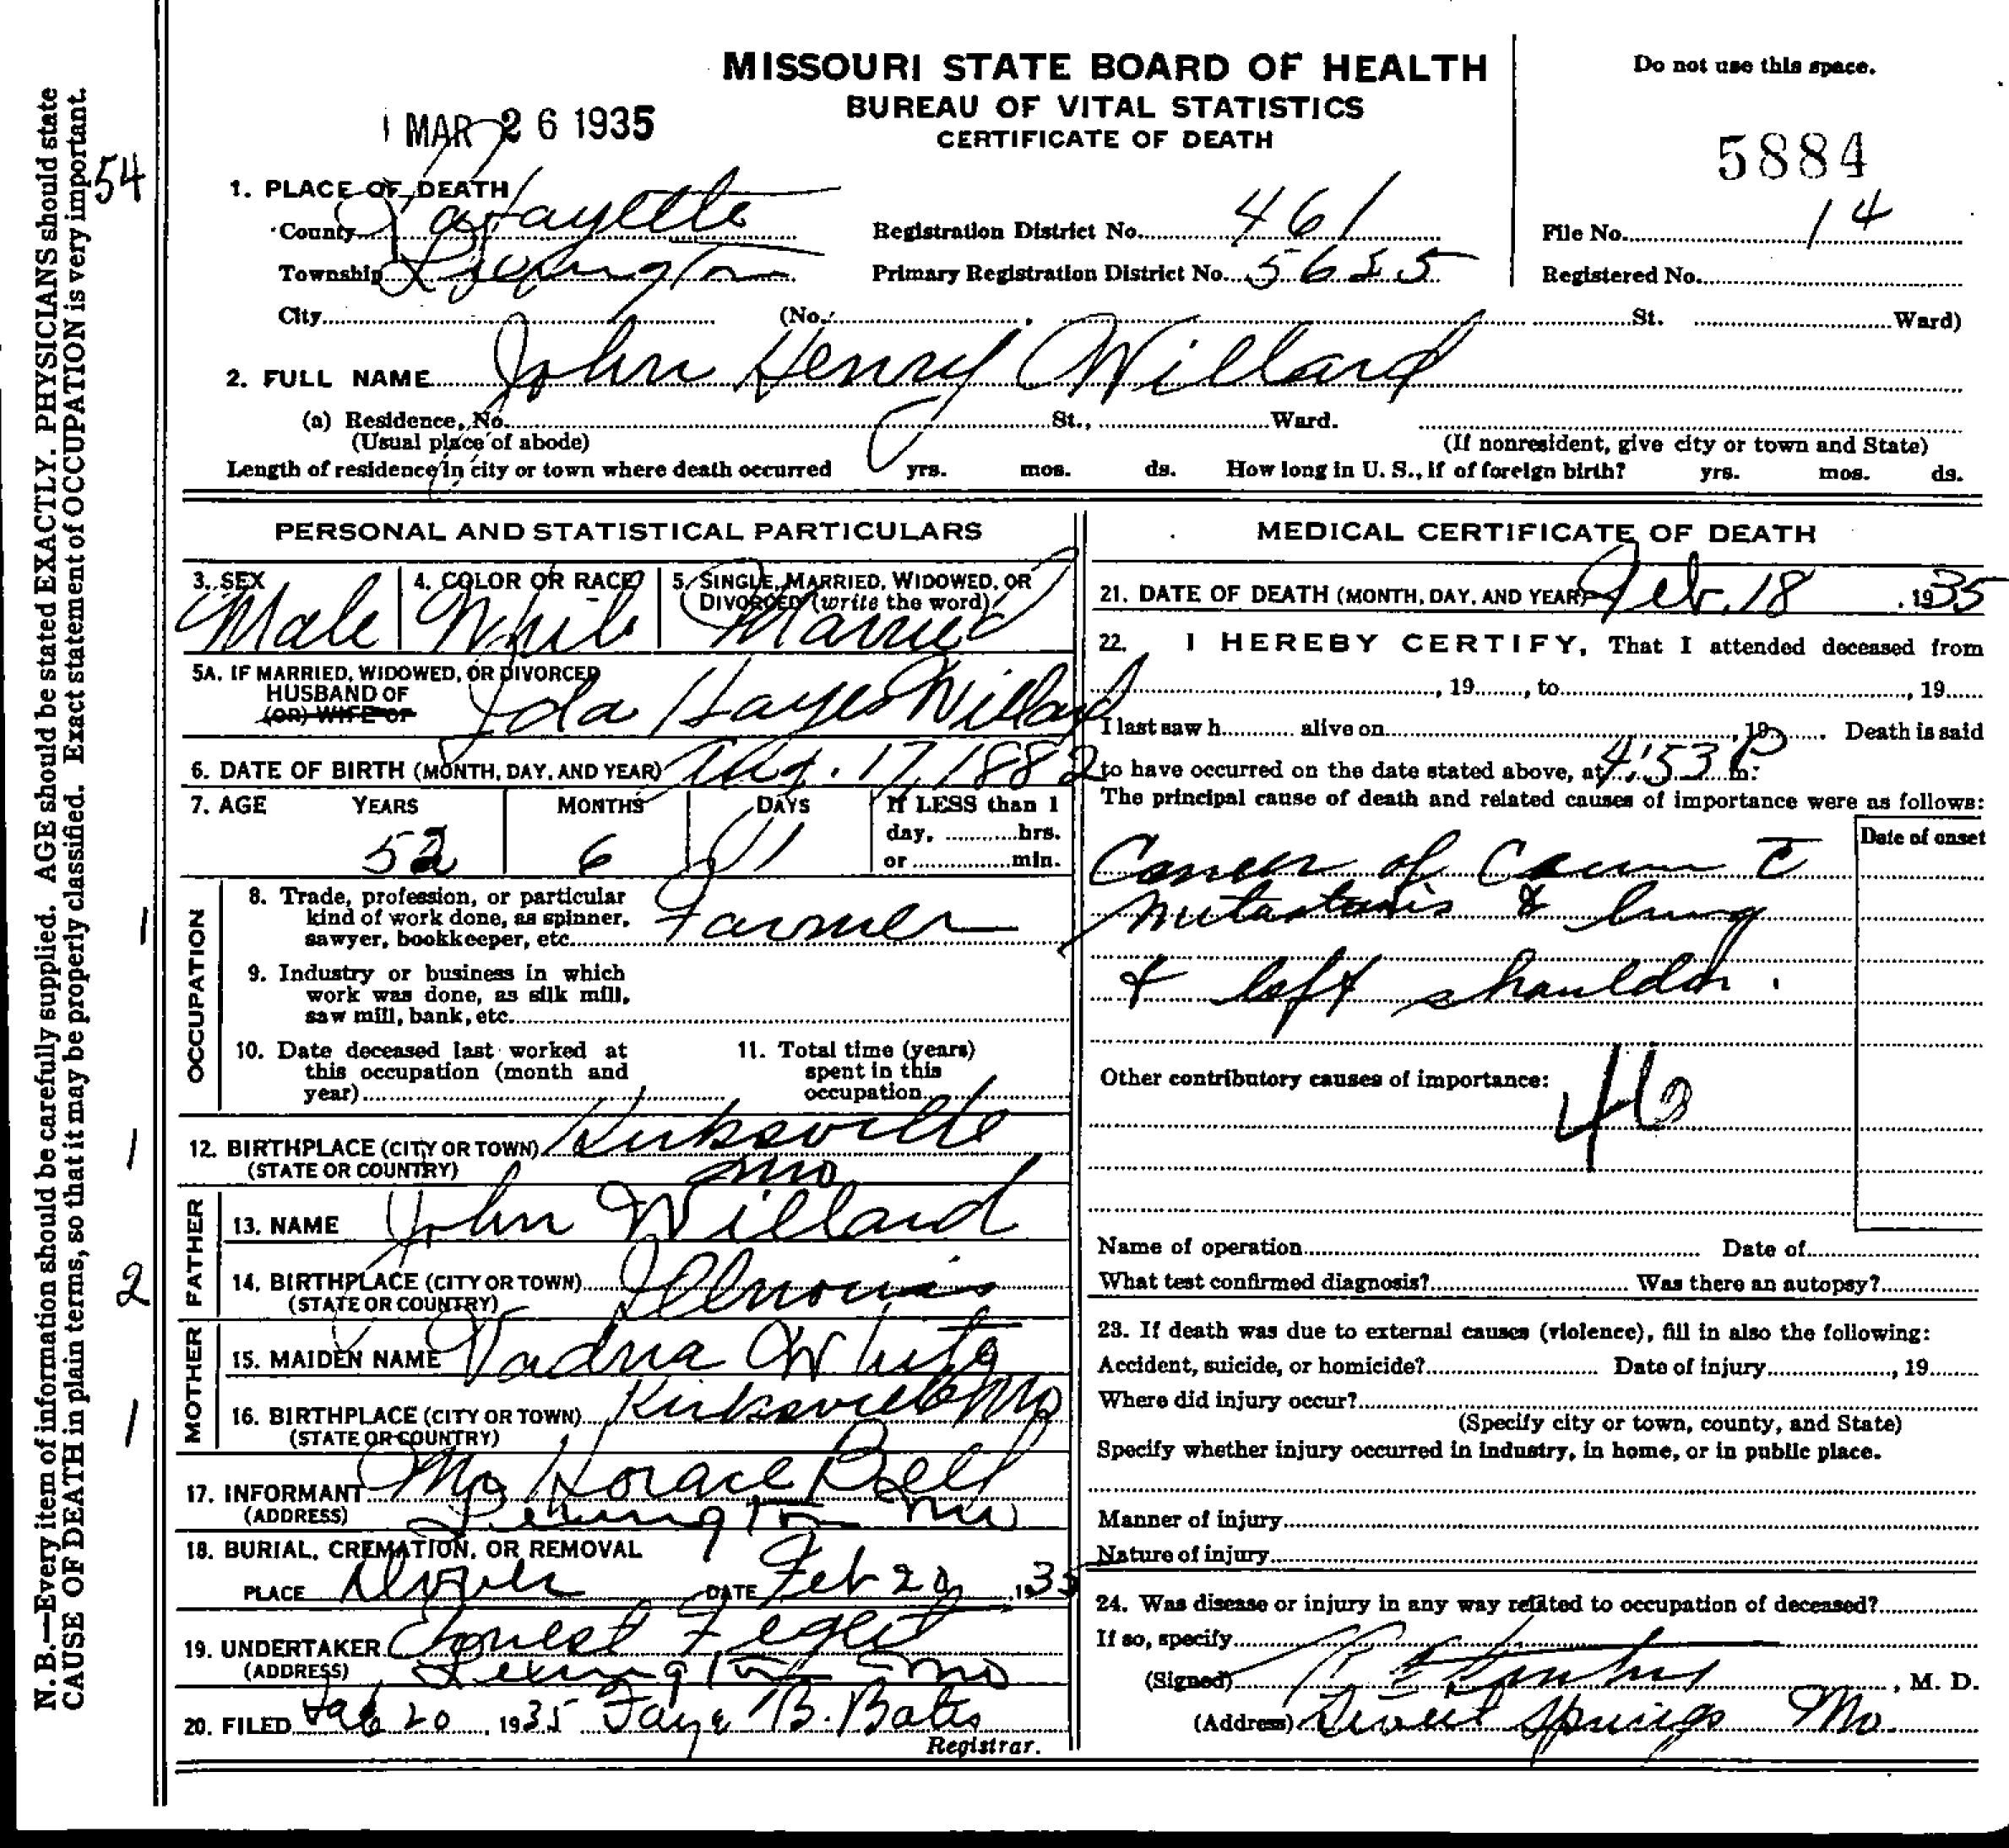 MISSOURI STATE BOARD OF HEALTH
BUREAU OF VITAL STATISTICS
CERTIFICATE OF DEATH
Do not use this space.
MAR 26 1935
5884
54
1. PLACE OF DEATH
County Lafayette Registration District No. 461 File No. 14
Township Lexington Primary Registration District No. 5625 Registered No.
City (No. St. Ward)
2. FULL NAME John Henry Willard
(a) Residence, No. St., Ward.
(Usual place of abode) (If nonresident, give city or town and State)
Length of residence in city or town where death occurred yrs. mos. ds. How long in U. S., if of foreign birth? yrs. mos. ds.
PERSONAL AND STATISTICAL PARTICULARS
3. SEX 4. COLOR OR RACE 5. SINGLE, MARRIED, WIDOWED, OR
DIVORCED (write the word)
Male White Married
5A. IF MARRIED, WIDOWED, OR DIVORCED
HUSBAND OF Ida Hayes Willard
(OR) WIFE OF
6. DATE OF BIRTH (MONTH, DAY, AND YEAR) Aug. 17, 1882
7. AGE YEARS MONTHS DAYS If LESS than 1
day, hrs.
or min.
52 6 1
OCCUPATION
8. Trade, profession, or particular
kind of work done, as spinner,
sawyer, bookkeeper, etc. Farmer
9. Industry or business in which
work was done, as silk mill,
saw mill, bank, etc.
10. Date deceased last worked at
this occupation (month and
year)
11. Total time (years)
spent in this
occupation
12. BIRTHPLACE (CITY OR TOWN) Kirksville
(STATE OR COUNTRY) Mo
FATHER
13. NAME John Willard
14. BIRTHPLACE (CITY OR TOWN) Illnouis
(STATE OR COUNTRY)
MOTHER
15. MAIDEN NAME White
16. BIRTHPLACE (CITY OR TOWN) Kirksville Mo
(STATE OR COUNTRY)
17. INFORMANT Horace Bell
(ADDRESS) Lexington Mo
18. BURIAL, CREMATION, OR REMOVAL
PLACE Dover DATE Feb 20, 1935
19. UNDERTAKER
(ADDRESS) Lexington Mo
20. FILED Feb 20, 1935 Faye B. Bates
Registrar.
MEDICAL CERTIFICATE OF DEATH
21. DATE OF DEATH (MONTH, DAY, AND YEAR) Feb. 18, 1935
22. I HEREBY CERTIFY, That I attended deceased from
, 19 , to , 19
I last saw h alive on , 19 . Death is said
to have occurred on the date stated above, at 4:53 P m.
The principal cause of death and related causes of importance were as follows:
Date of onset
Cancer of Cecum c̄
metastasis & lung
& left shoulder.
Other contributory causes of importance:
46
Name of operation Date of
What test confirmed diagnosis? Was there an autopsy?
23. If death was due to external causes (violence), fill in also the following:
Accident, suicide, or homicide? Date of injury , 19
Where did injury occur?
(Specify city or town, county, and State)
Specify whether injury occurred in industry, in home, or in public place.
Manner of injury
Nature of injury
24. Was disease or injury in any way related to occupation of deceased?
If so, specify
(Signed) , M. D.
(Address) Springs Mo.
N. B.—Every item of information should be carefully supplied. AGE should be stated EXACTLY. PHYSICIANS should state
CAUSE OF DEATH in plain terms, so that it may be properly classified. Exact statement of OCCUPATION is very important.
1
1
2
1